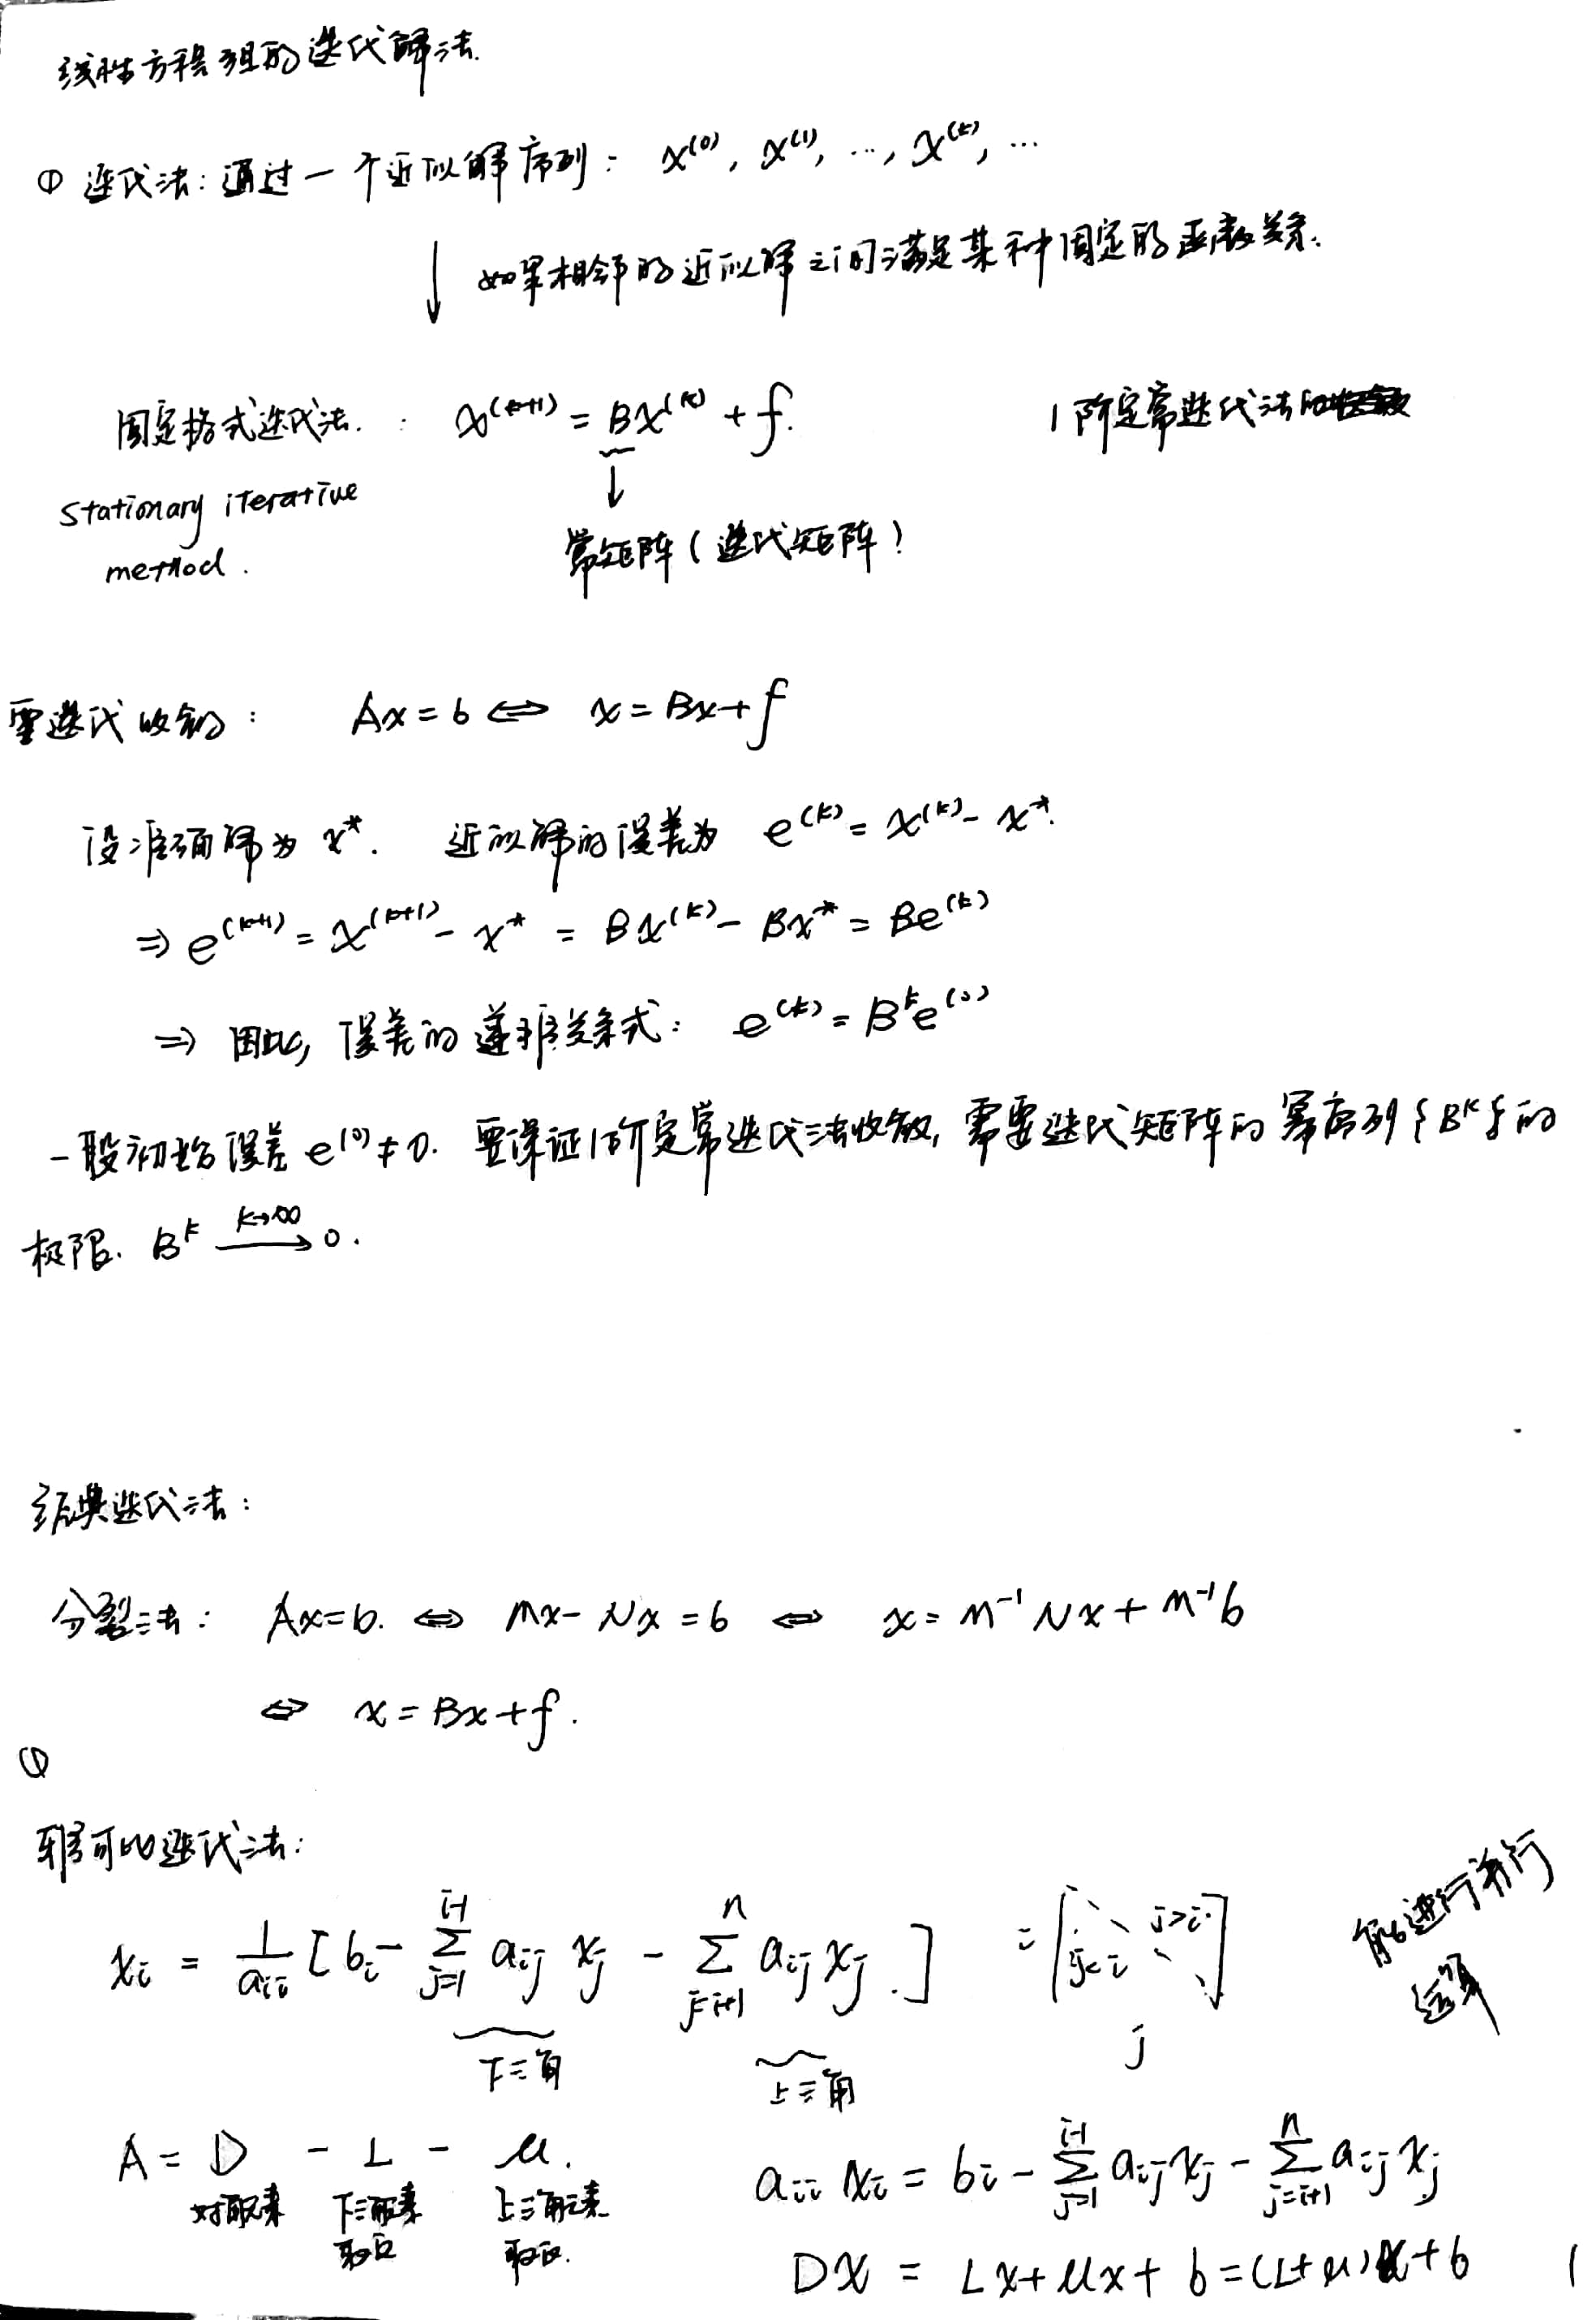 线性方程组的迭代解法.
① 迭代法: 通过一个近似解序列: x^(0), x^(1), …, x^(k), …
↓ 如果相邻的近似解之间满足某种固定的函数关系.
固定格式迭代法. : x^(k+1) = Bx^(k) + f. 1阶定常迭代法
Stationary iterative method.
↓
常矩阵 (迭代矩阵)
要迭代收敛: Ax = b ⇔ x = Bx + f
设准确解为 x*. 近似解的误差为 e^(k) = x^(k) - x*.
⇒ e^(k+1) = x^(k+1) - x* = Bx^(k) - Bx* = Be^(k)
⇒ 因此, 误差的递推关系式: e^(k) = B^k e^(0)
一般初始误差 e^(0) ≠ 0. 要保证1阶定常迭代法收敛, 需要迭代矩阵的幂序列{B^k}的
极限. B^k —k→∞→ 0.
经典迭代法:
分裂法: Ax = b. ⇔ Mx - Nx = b ⇔ x = M^-1 Nx + M^-1 b
⇔ x = Bx + f.
①
雅可比迭代法:
x_i = 1/a_ii [b_i - Σ_{j=1}^{i-1} a_ij x_j - Σ_{j=i+1}^{n} a_ij x_j.] = [j<i j>i] 能进行并行
运算
下三角 上三角 j
A = D - L - U. a_ii x_i = b_i - Σ_{j=1}^{i-1} a_ij x_j - Σ_{j=i+1}^{n} a_ij x_j
对角元素 下三角元素取反 上三角元素取反.
Dx = Lx + Ux + b = (L+U)x + b